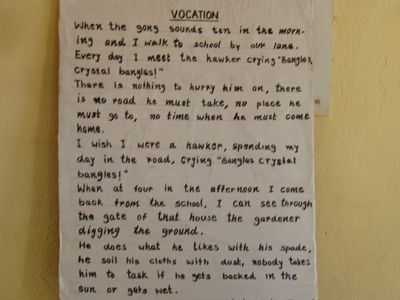 VOCATION
When the gong sounds ten in the morn-
ing and I walk to school by our lane.
Every day I meet the hawker crying "Bangles,
crystal bangles!"
There is nothing to hurry him on, there
is no road he must take, no place he
must go to, no time when he must come
home.
I wish I were a hawker, spending my
day in the road, Crying "Bangles crystal
bangles!"
When at four in the afternoon I come
back from the school, I can see through
the gate of that house the gardener
digging the ground.
He does what he likes with his spade,
he soil his cloths with dust, nobody takes
him to task if he gets backed in the
sun or gets wet.